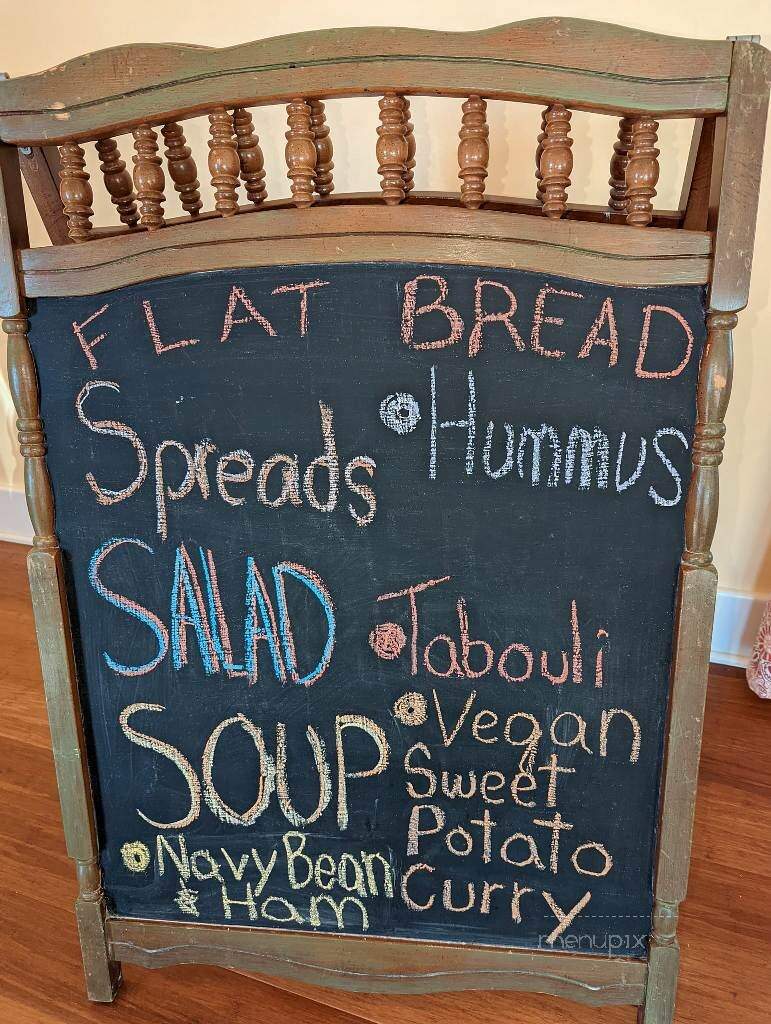 FLAT BREAD
Spreads • Hummus
SALAD • Tabouli
SOUP • Vegan
Sweet
Potato
Curry
• Navy Bean
& Ham
menupix